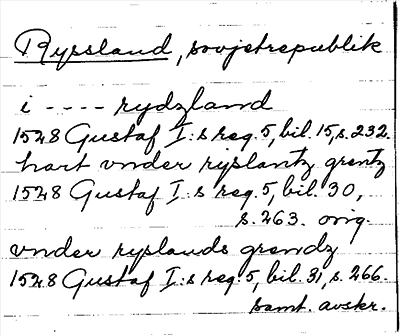 Ryssland, sovjetrepublik
i ---- rydzland
1528 Gustaf I:s reg. 5, bil. 15, s. 232.
hart vnder rijslantz grentz
1528 Gustaf I:s reg. 5, bil. 30,
s. 263. orig.
vnder ryslands grendz
1528 Gustaf I:s reg. 5, bil. 31, s. 266.
samt. avskr.